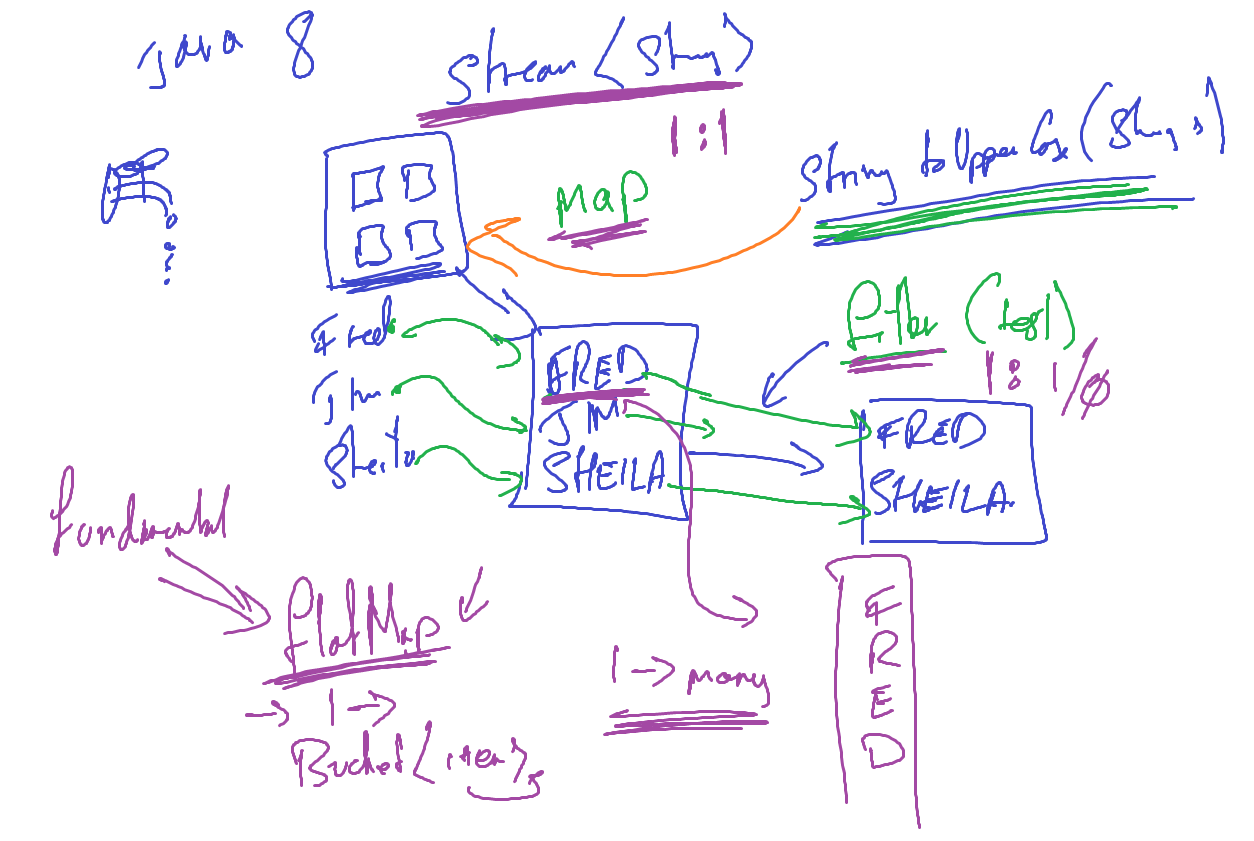 Java 8
Stream <String>
1:1
String toUpperCase (String s)
MAP
filter (test)
1:1/0
Fred
Jim
Sheila
FRED
JIM
SHEILA
FRED
SHEILA
fundamental
flatMap
→ 1 →
Bucket <item>
1 → many
F
R
E
D